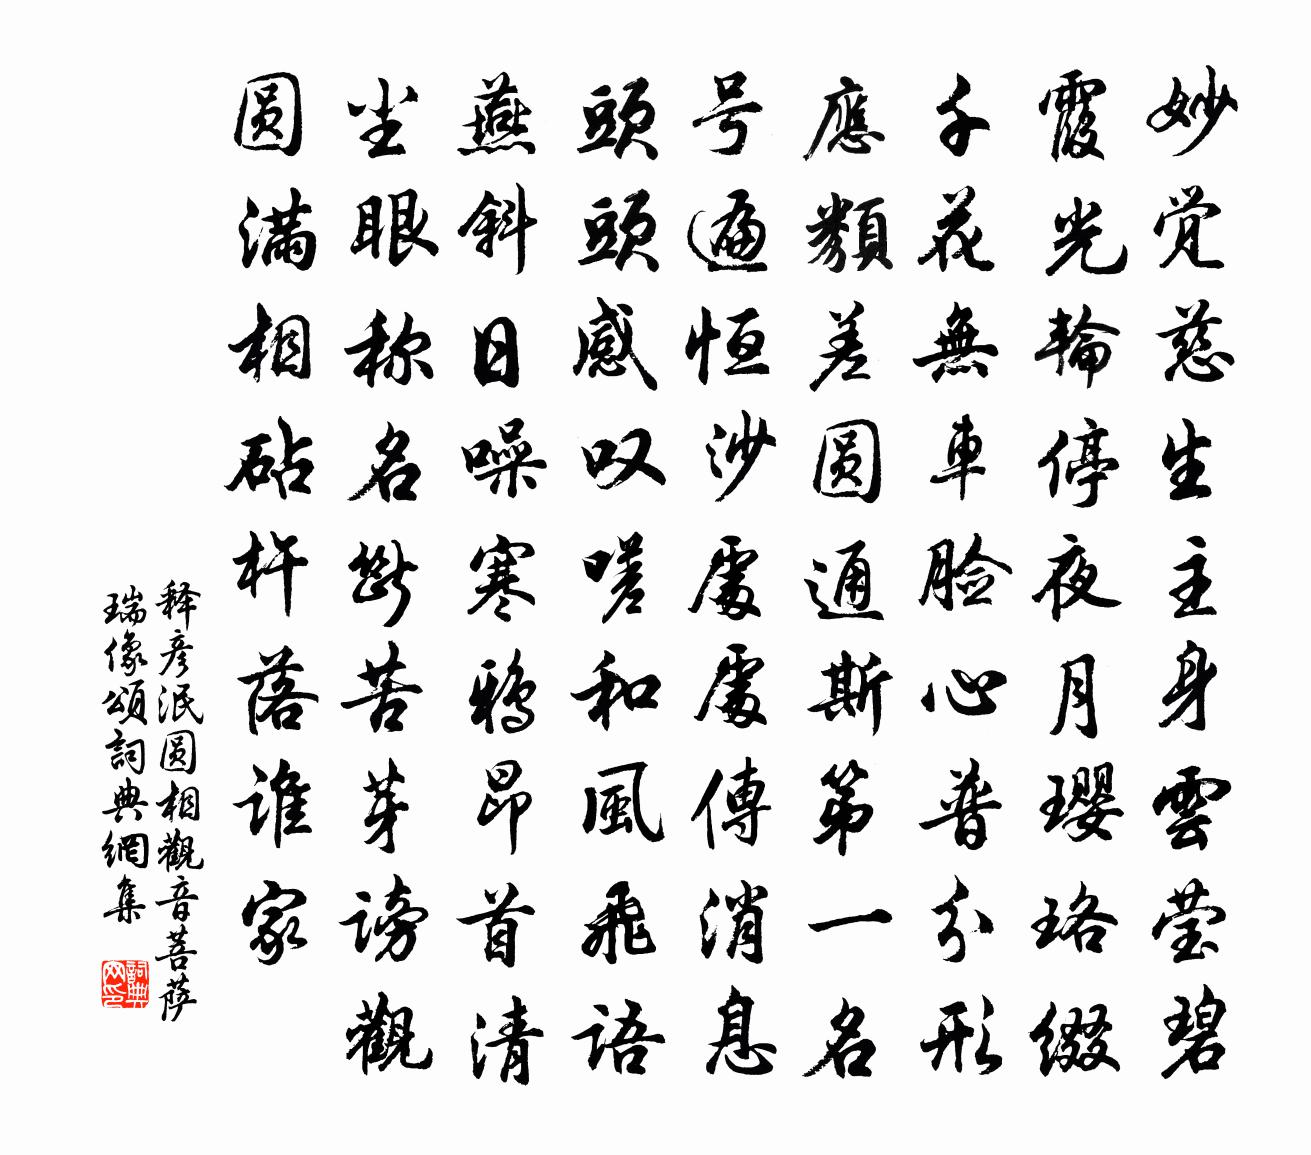 妙觉慈生主身雲莹碧
霞光輪停夜月璎珞缀
千花無車脸心普分形
應類差圆通斯第一名
号遍恒沙處處傳消息
頭頭感叹嗟和風飛語
燕斜日噪寒鸦昂首清
坐眼称名断苦芽謗觀
圆满相砧杵落谁家
释彦泯圆相觀音菩萨
瑞像頌詞典網集
詞典